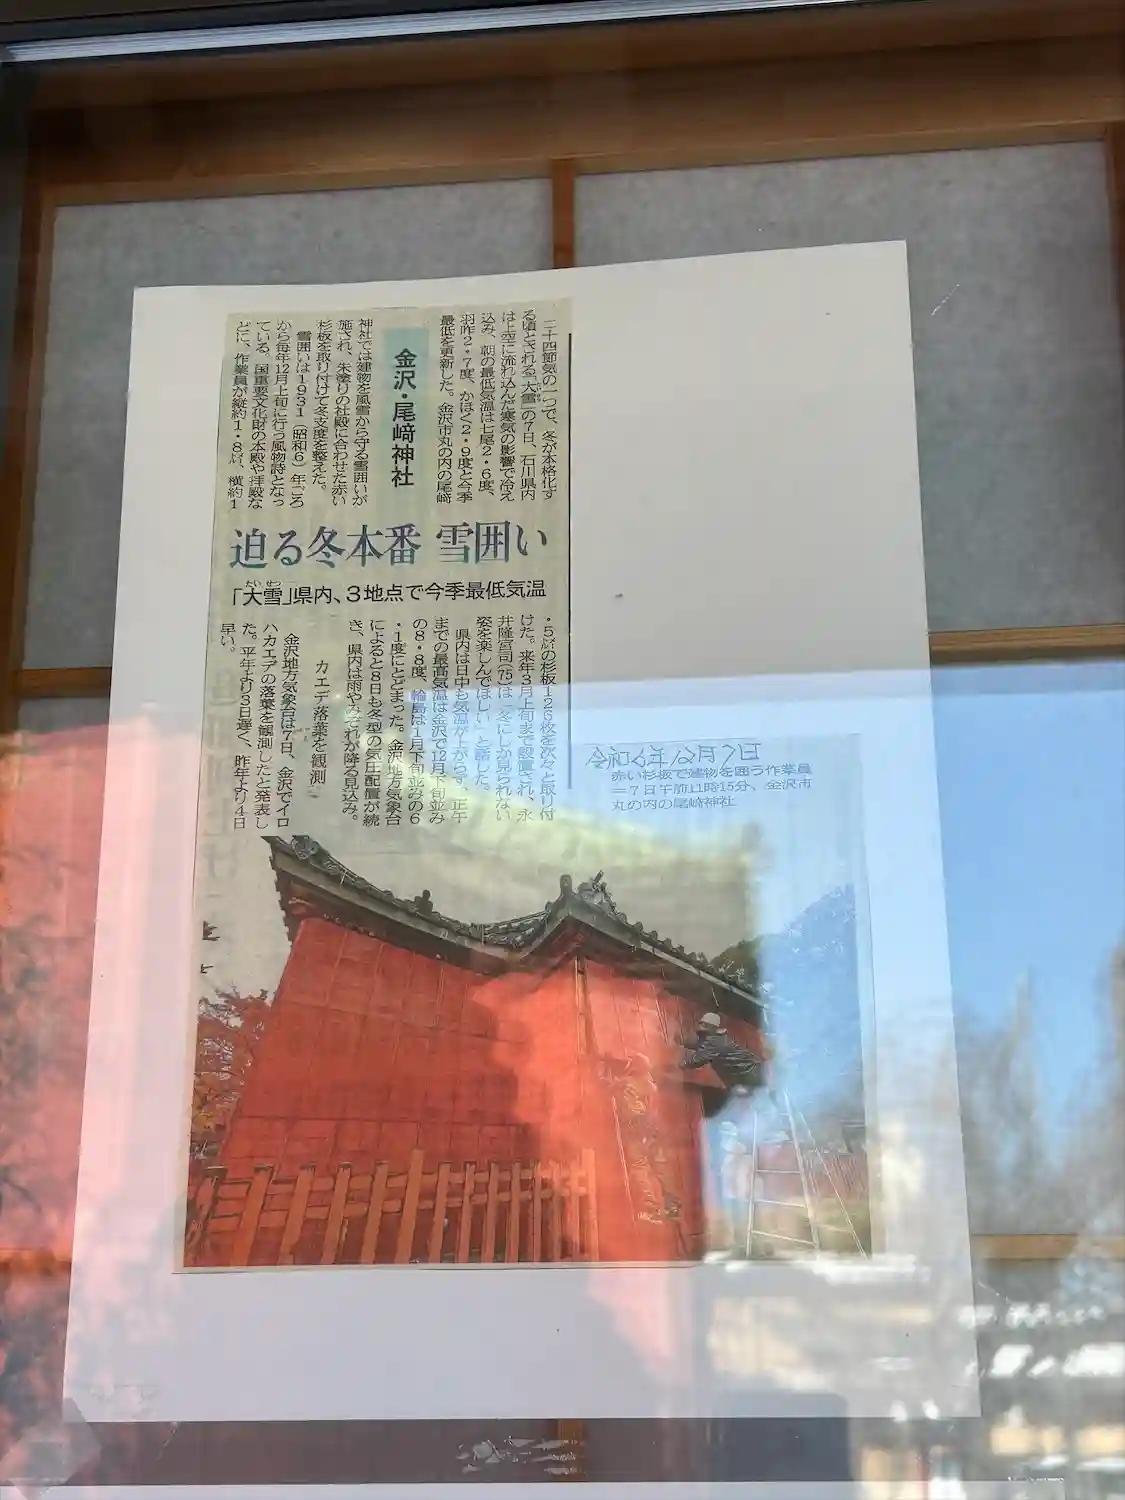 迫る冬本番 雪囲い
「大雪」県内、3地点で今季最低気温
金沢・尾﨑神社
二十四節気の一つで、冬が本格化す
る頃とされる「大雪」の7日、石川県内
は上空に流れ込んだ寒気の影響で冷え
込み、朝の最低気温は七尾2・6度、
羽咋2・7度、かほく2・9度と今季
最低を更新した。金沢市丸の内の尾﨑
神社では建物を風雪から守る雪囲いが
施され、朱塗りの社殿に合わせた赤い
杉板を取り付けて冬支度を整えた。
雪囲いは1931(昭和6)年ごろ
から毎年12月上旬に行う風物詩となっ
ている。国重要文化財の本殿や拝殿な
どに、作業員が縦約1・8㍍、横約1
・5㍍の杉板126枚を次々と取り付
けた。来年3月上旬まで設置され、永
井隆宮司(75)は「冬にしか見られない
姿を楽しんでほしい」と話した。
県内は日中も気温が上がらず、正午
までの最高気温は金沢で12月下旬並み
の8・8度、輪島は1月下旬並みの6
・1度にとどまった。金沢地方気象台
によると8日も冬型の気圧配置が続
き、県内は雨やみぞれが降る見込み。
カエデ落葉を観測
金沢地方気象台は7日、金沢でイロ
ハカエデの落葉を観測したと発表し
た。平年より3日遅く、昨年より4日
早い。
令和6年12月7日
赤い杉板で建物を囲う作業員
=7日午前11時15分、金沢市
丸の内の尾﨑神社